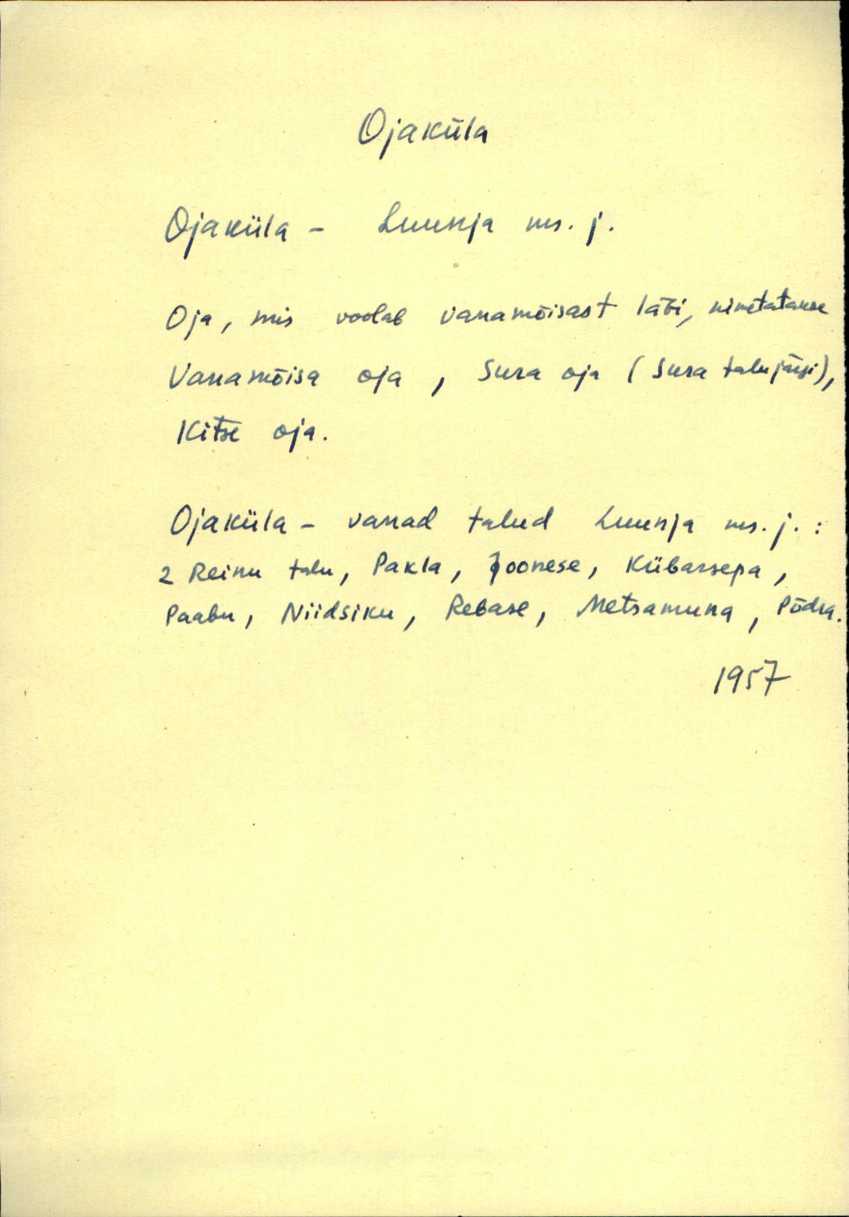 Ojaküla
Ojaküla - Luunja ms. j.
Oja, mis voolab vanamõisast läbi, nimetatakse
Vanamõisa oja, Sura oja (Sura talu järgi),
Kitse oja.
Ojaküla - vanad talud Luunja ms. j. :
2 Reinu talu, Pakla, Joonese, Kübarsepa,
Paabu, Niidsiku, Rebase, Metsamuna, Põdra.
1957